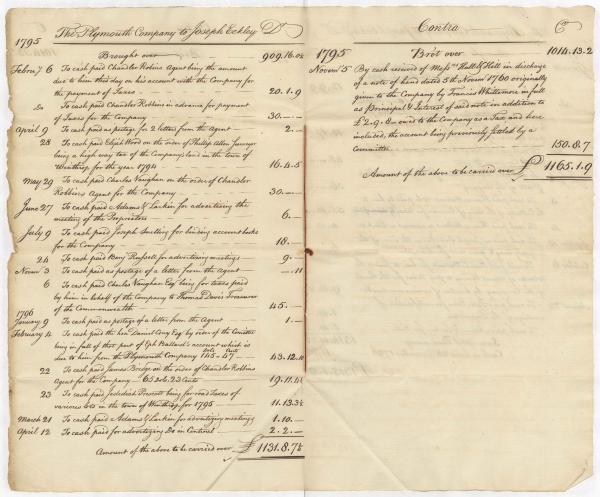 1795 The Plymouth Company to Joseph Eckley Dr
Brought over 909.16.0½
Febru.y 6 To cash paid Chandler Robins Agent being the amount
due to him this day on his account with the Company for
the payment of Taxes 20.1.9
Do To cash paid Chandler Robbins in advance for payment
of Taxes for the Company 30.—
April 9 To cash paid as postage for 2 letters from the Agent 2.—
28 To cash paid Elijah Wood on the order of Phillip Allen Surveyor
being a high way tax of the Company's land in the town of
Winthrop for the year 1794 16.4.5
May 29 To cash paid Charles Vaughan on the order of Chandler
Robbins Agent for the Company 30.—
June 27 To cash paid Adams & Larkin for advertising the
meeting of the Proprietors 6.—
July 9 To cash paid Joseph Snelling for binding account books
for the Company 18.—
24 To cash paid Benj Russell for advertising meetings 9.—
Novem.r 3 To cash paid as postage of a letter from the Agent —.11
6 To cash paid Charles Vaughan Esq.r being for taxes paid
by him in behalf of the Company to Thomas Davis Treasurer
of the Commonwealth 45.—
1796
January 9 To cash paid as postage of a letter from the Agent 1.—
February 4 To cash paid the hon. Daniel Cony Esq.r by order of the Com̃ittee
being in full of that part of Eph Ballard's account which is
due to him from the Plymouth Company Dols 145 - Cents 47 43.12.10
22 To cash paid James Bridge on the order of Chandler Robbins
Agent for the Company 65 Dols. 23 Cents 19.11.4½
23 To cash paid Jedediah Prescott being for road Taxes of
various lots in the town of Winthrop for 1795 11.13.3½
March 21 To cash paid Adams & Larkin for advertizing meetings 1.10.—
April 12 To cash paid for advertizing Do in Centinel 2.2.—
Amount of the above to be carried over £1131.8.7½
Contra Cr
1795 Bro't over 1014.13.2
Novem.r 5 By cash received of Mess.rs Hall & Hill in discharge
of a note of hand dated 5th Novem.r 1760 originally
given to the Company by Francis Whittemore in full
as Principal & Interest of said note in addition to
£2.9.8 owed to the Company as a Tax and here
included, the account being previously settled by a
Committee 150.8.7
Amount of the above to be carried over £1165.1.9